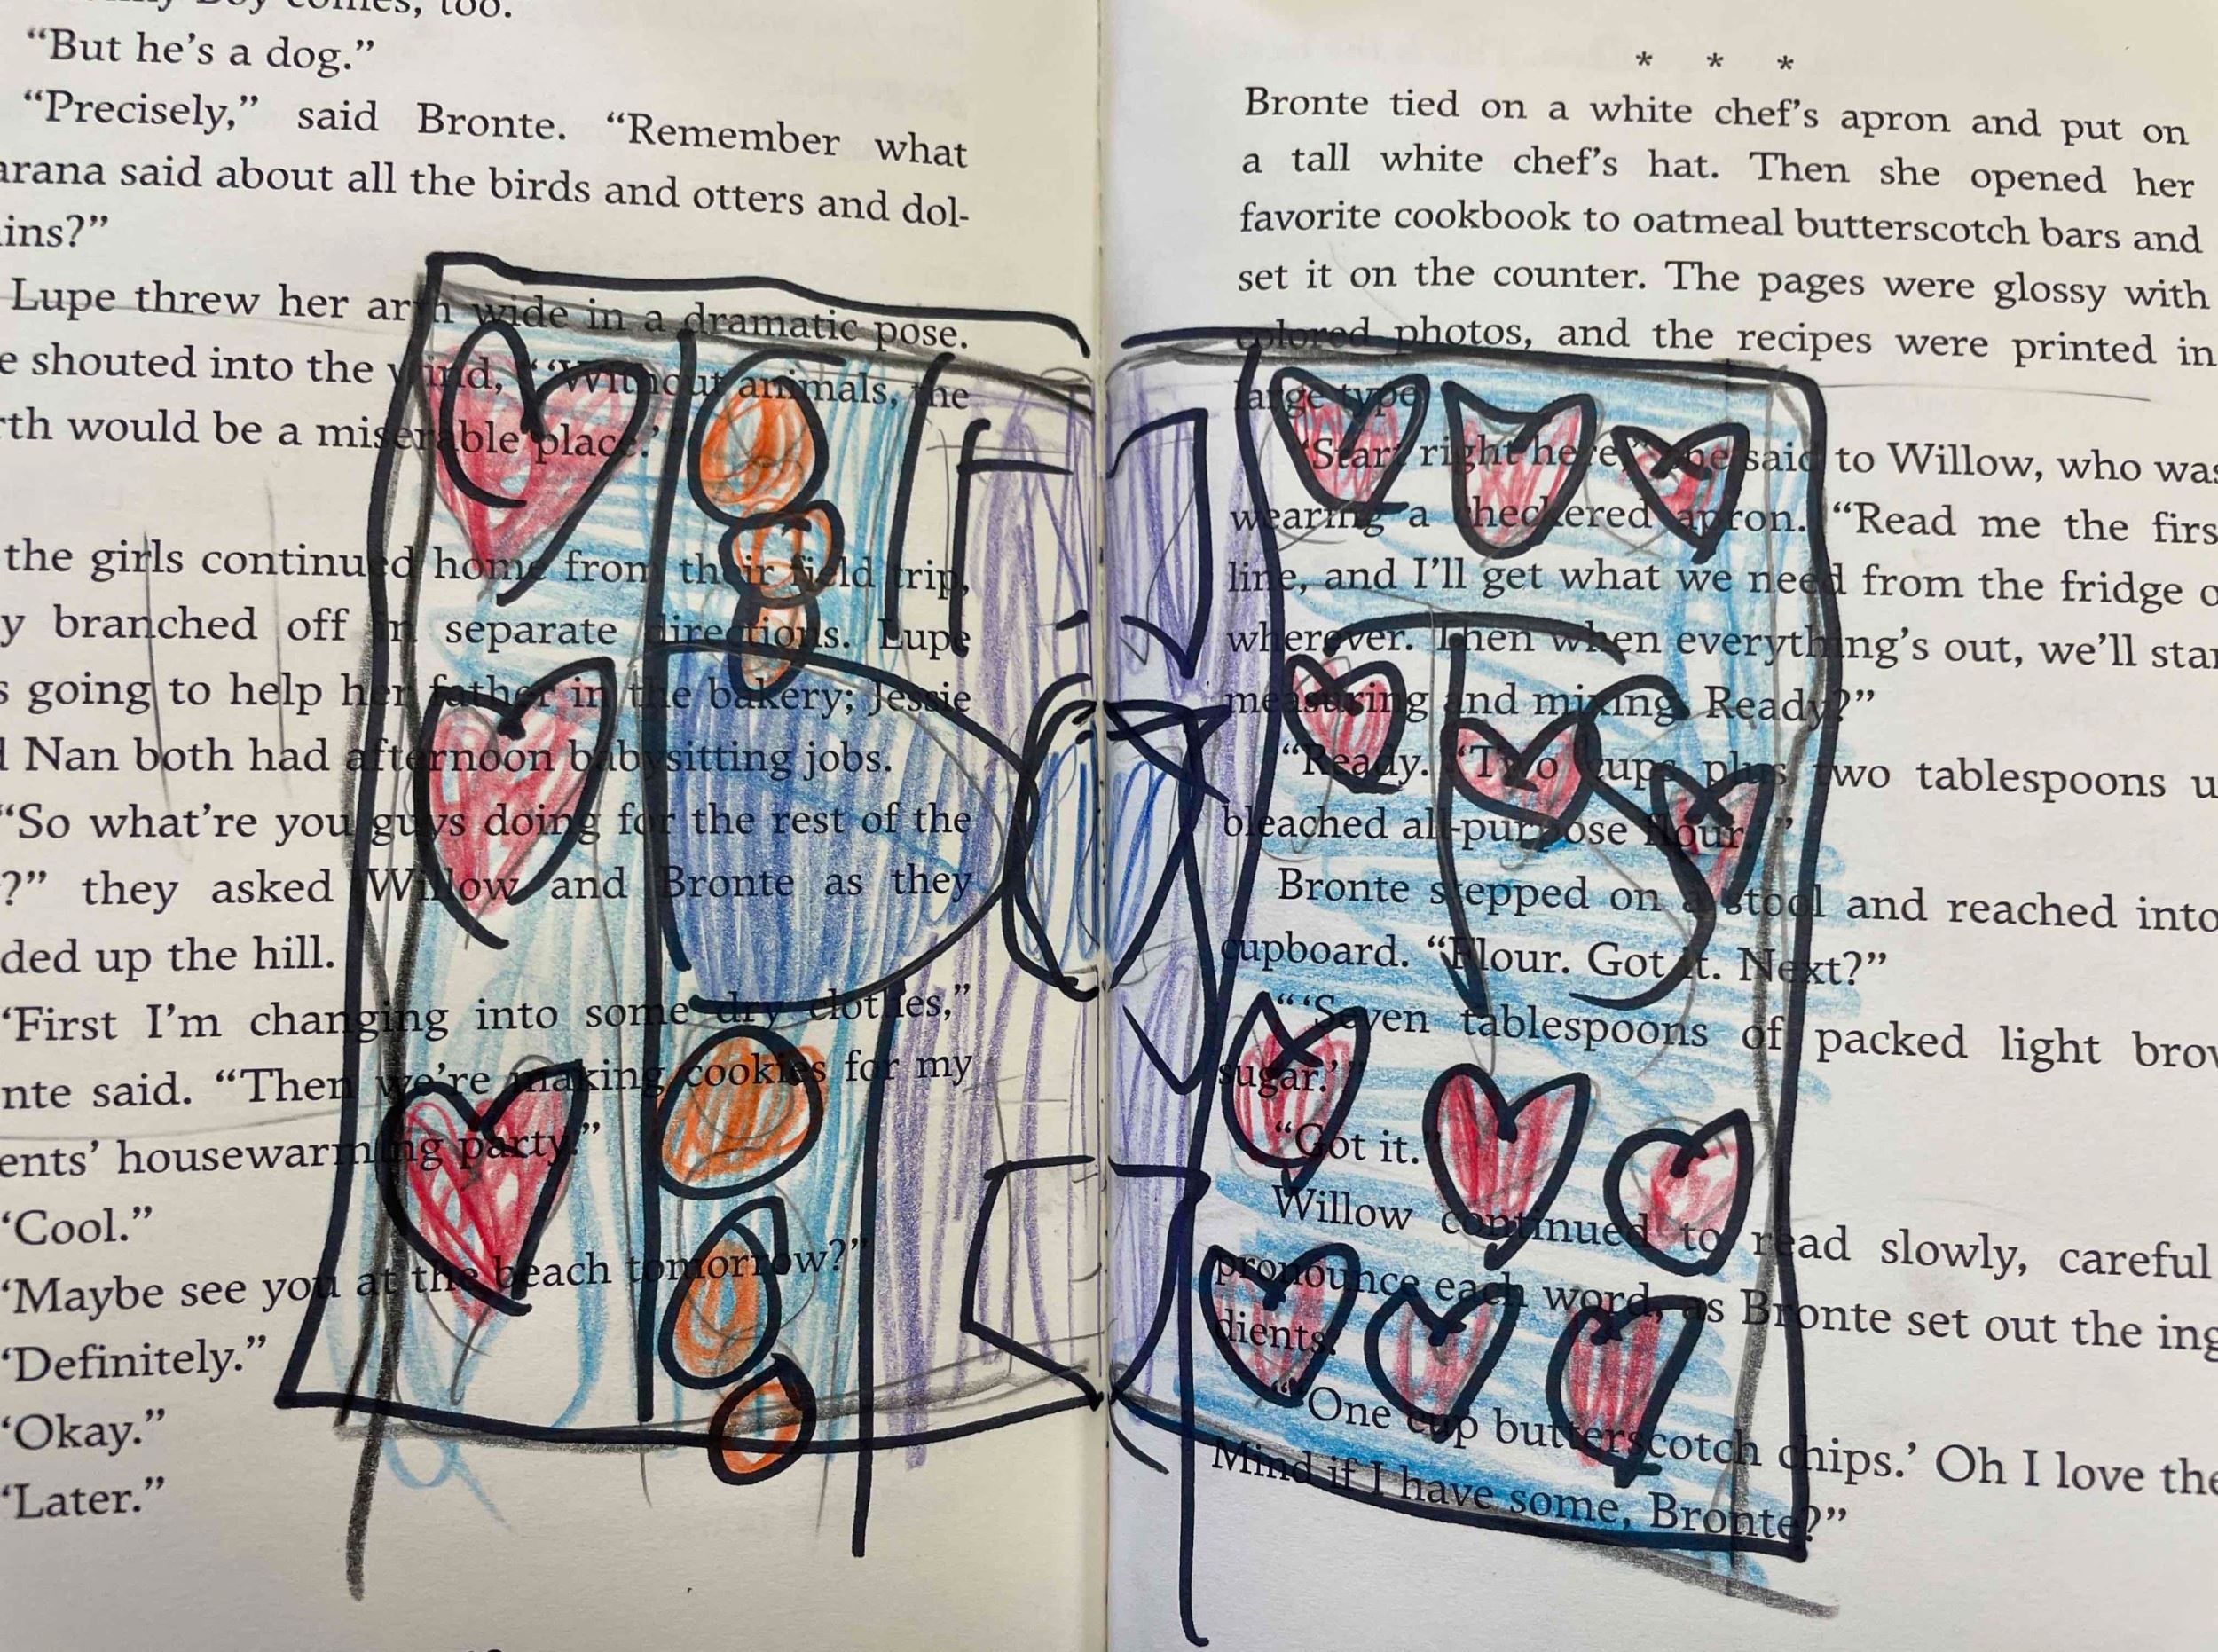 too.
“But he’s a dog.”
“Precisely,” said Bronte. “Remember what
said about all the birds and otters and dol-
Lupe threw her wide in a dramatic pose.
shouted into the wind, “Without animals, the
would be a miserable place.’”
the girls continued home from their field trip,
branched off in separate directions. Lupe
going to help her father in the bakery; Jessie
Nan both had afternoon babysitting jobs.
“So what’re you guys doing for the rest of the
?” they asked Willow and Bronte as they
up the hill.
“First I’m changing into some dry clothes,”
said. “Then we’re making cookies for my
housewarming party.”
“Cool.”
“Maybe see you at the beach tomorrow?”
“Definitely.”
“Okay.”
“Later.”
* * *
Bronte tied on a white chef’s apron and put on
a tall white chef’s hat. Then she opened her
favorite cookbook to oatmeal butterscotch bars and
set it on the counter. The pages were glossy with
colored photos, and the recipes were printed in
large type.
“Start right here,” she said to Willow, who was
wearing a checkered apron. “Read me the firs
line, and I’ll get what we need from the fridge o
wherever. Then when everything’s out, we’ll star
measuring and mixing. Ready?”
“Ready. ‘Two cups plus two tablespoons u
bleached all-purpose flour.’”
Bronte stepped on a stool and reached into
cupboard. “Flour. Got it. Next?”
“‘Seven tablespoons of packed light brow
sugar.’”
“Got it.”
Willow continued to read slowly, careful
pronounce each word, as Bronte set out the ing
dients.
“‘One cup butterscotch chips.’ Oh I love the
Mind if I have some, Bronte?”